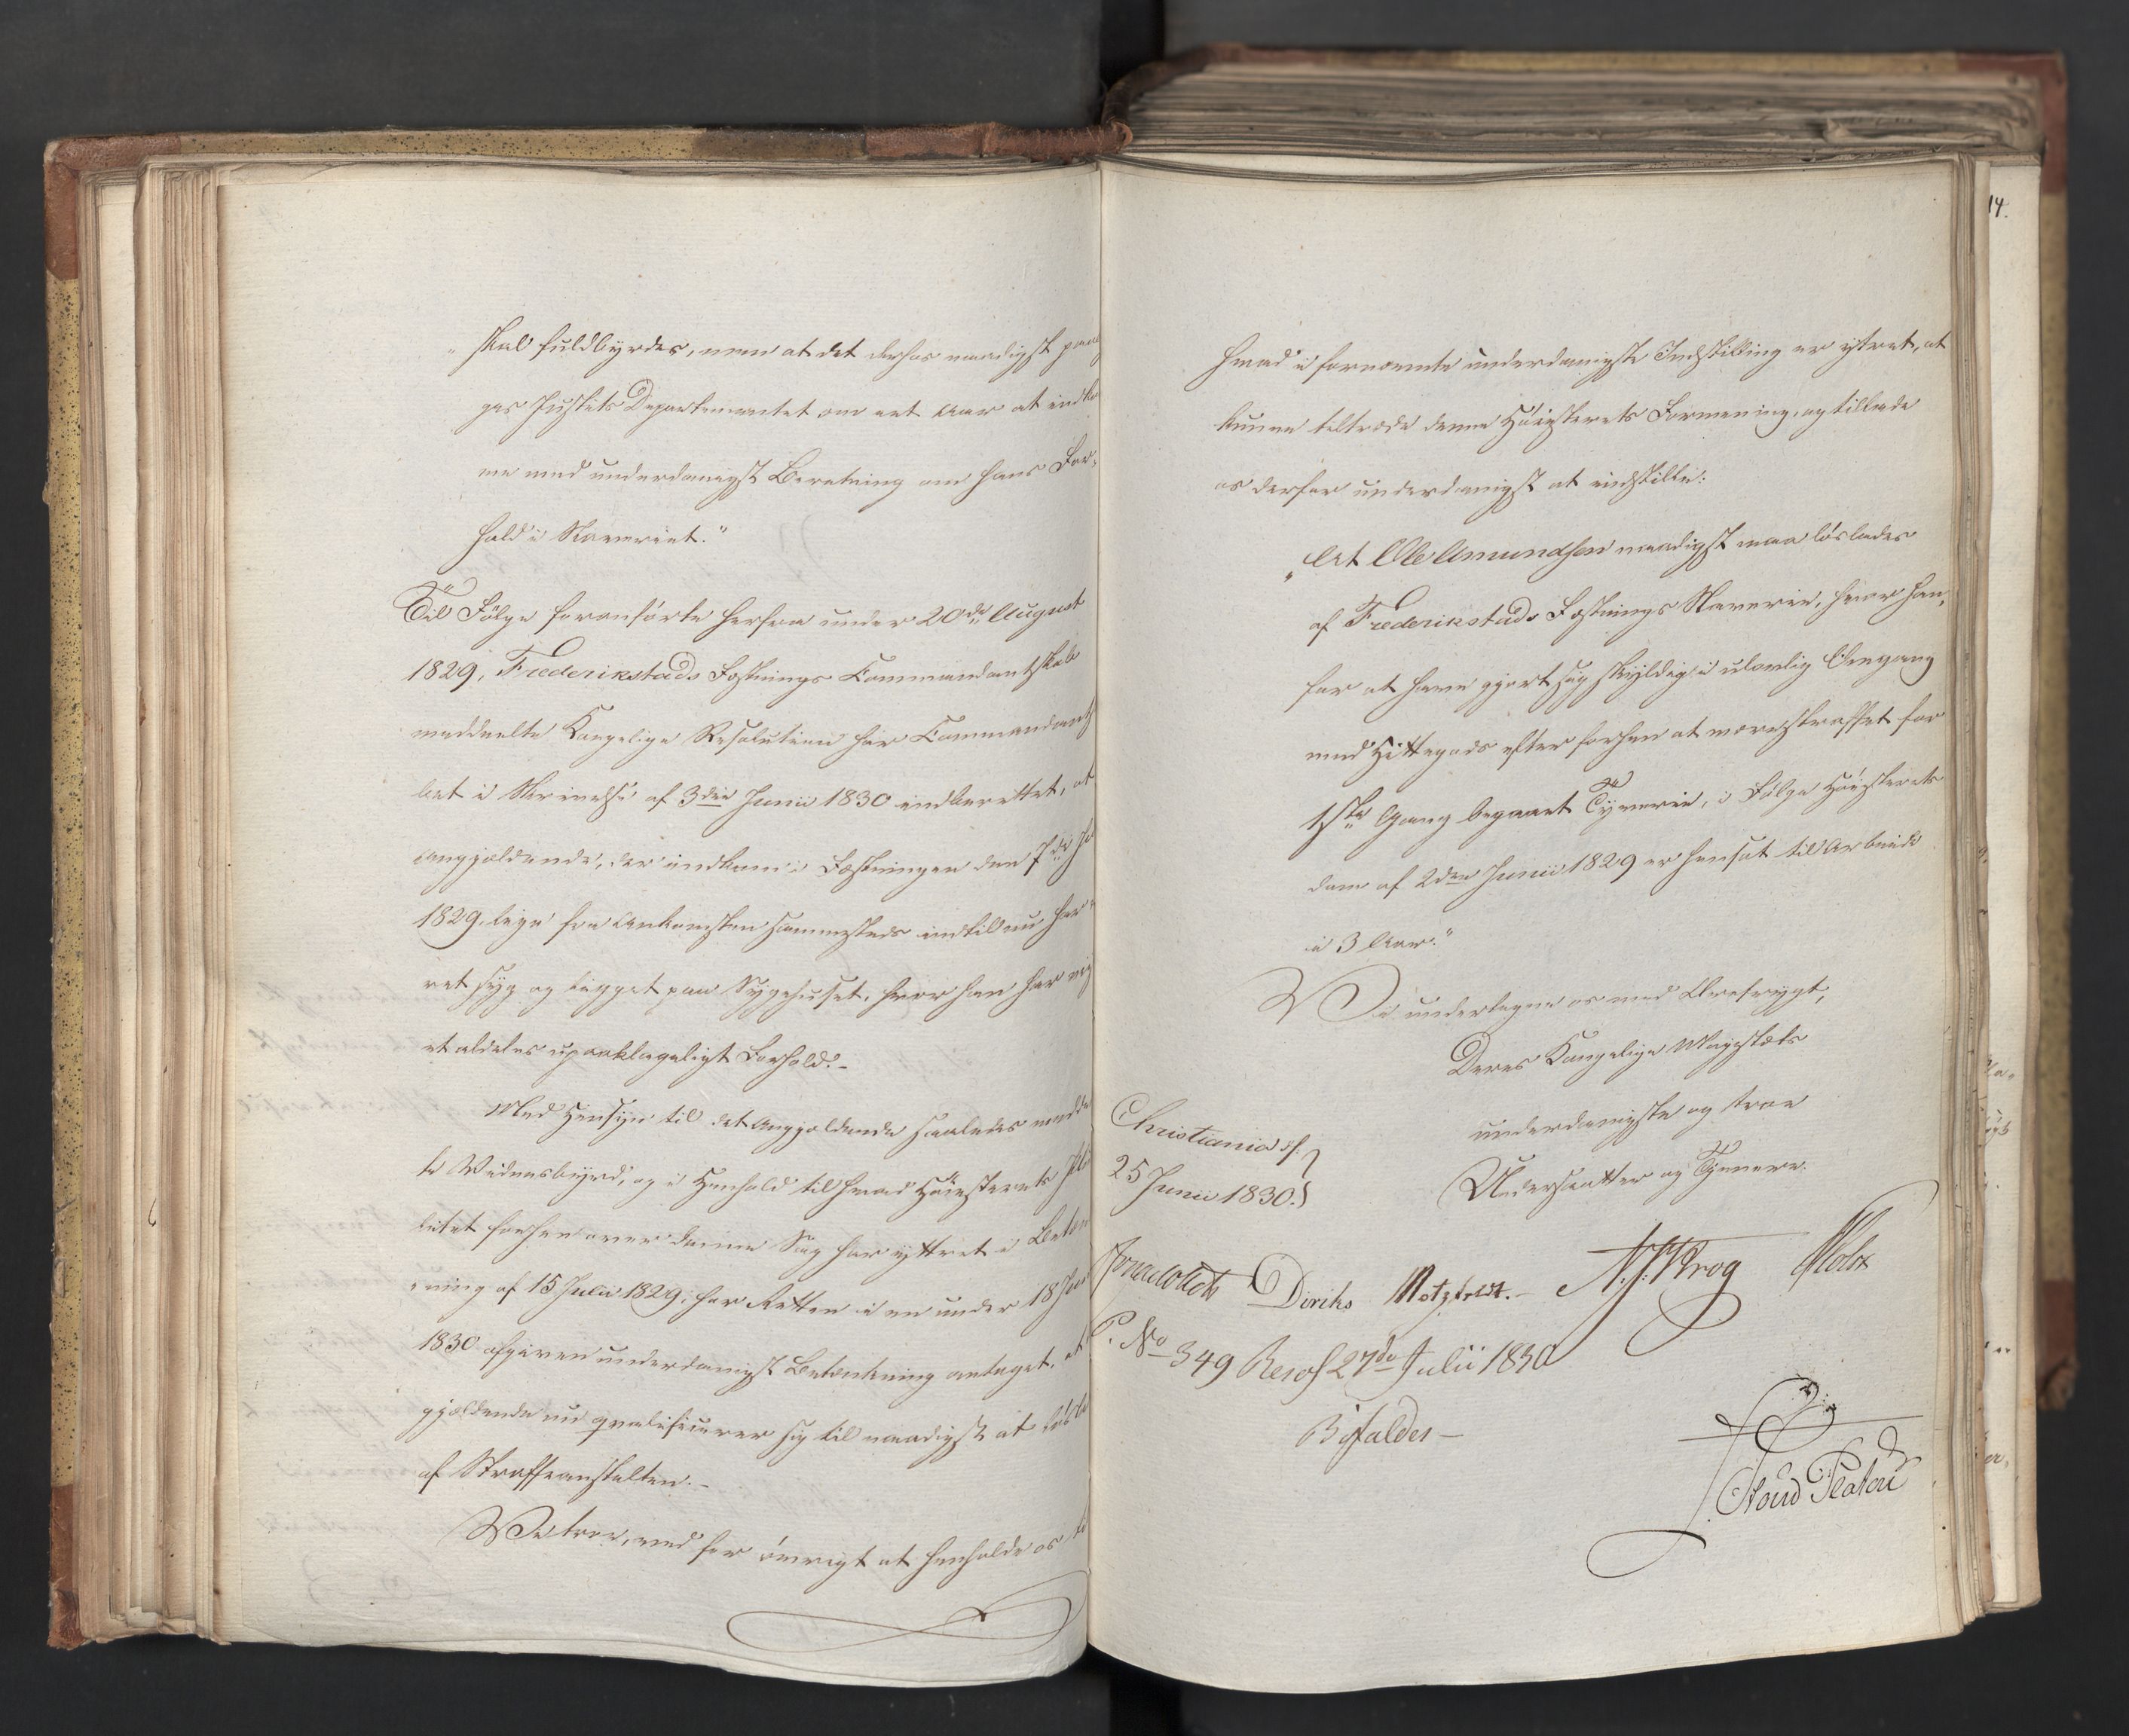 „skal fuldbyrdes, men at det derhos naadigst paalæg
ges Justits Departementet om eet Aar at indkom
me med underdanigst Beretning om hans For-
hold i Slaveriet."
Til Fölge foranførte herfra under 20de August
1829, Frederikstads Fæstnings Commandantskab
meddeelte Kongelige Resolution har Commandantska
bet i Skrivelse af 3die Junii 1830 indberettet, at
angjældende, der indkom i Fæstningen den 7de
1829, lige fra Ankomsten sammesteds indtil nu har
ret syg og ligget paa Sygehuset, hvor han har
et aldeles upaaklageligt Forhold.-
Med Hensyn til det Angjældende saaledes meddeel
te Vidnesbyrd, og i Henhold til hvad Höiesterets
litet forhen over denne Sag har yttret i Betænk
ning af 15 Julii 1829, har Retten i en under 18 Junii
1830 afgiven underdanigst Betænkning antaget, at
gjældende nu qvalificerer sig til naadigst at lösla
af Straffeanstalten.-
Vi troe, med for övrigt at henholde os til
14.
hvad i fornævnte underdanigste Indstilling er ytret, at
kunne tiltræde denne Höiesterets Formening, og tillade
os derfor underdanigst at indstille:
„At Ole Amundsen naadigst maa löslades
af Frederikstads Fæstnings Slaverie, hvor han,
for at have gjort sig skyldig i ulovlig Omgang
med Hittegods efter forhen at være straffet for
1ste Gang begaaet Tyverie, i Fölge Höiesterets
dom af 2den Junii 1829 er hensat til Arbeide
i 3 Aar."
Vi undertegne os med Ærefrygt,
Deres Kongelige Majestæts
underdanigste og troe
Undersaatter og Tjenere.
Christiania d.
25 Junii 1830.
Diriks Motzfeldt.- N. J. Krog Holst
P. No 349 Resol 27de Julii 1830
Bifaldes -
Stoud Platou